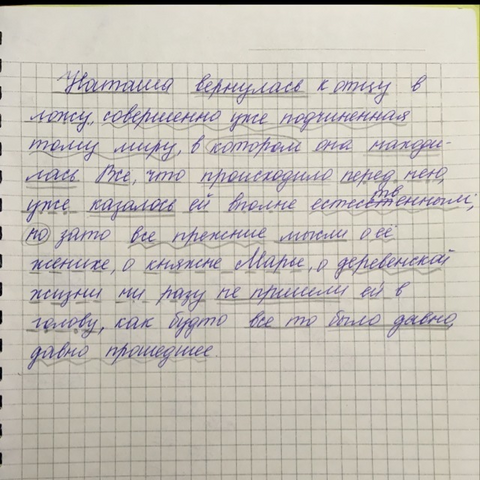 Наташа вернулась к отцу в
ложу, совершенно уже подчиненная
тому миру, в котором она находи-
лась. Все, что происходило перед нею,
уже казалось ей вполне естественным;
но зато все прежние мысли о её
женихе, о княжне Марье, о деревенской
жизни ни разу не пришли ей в
голову, как будто все то было давно,
давно прошедшее.